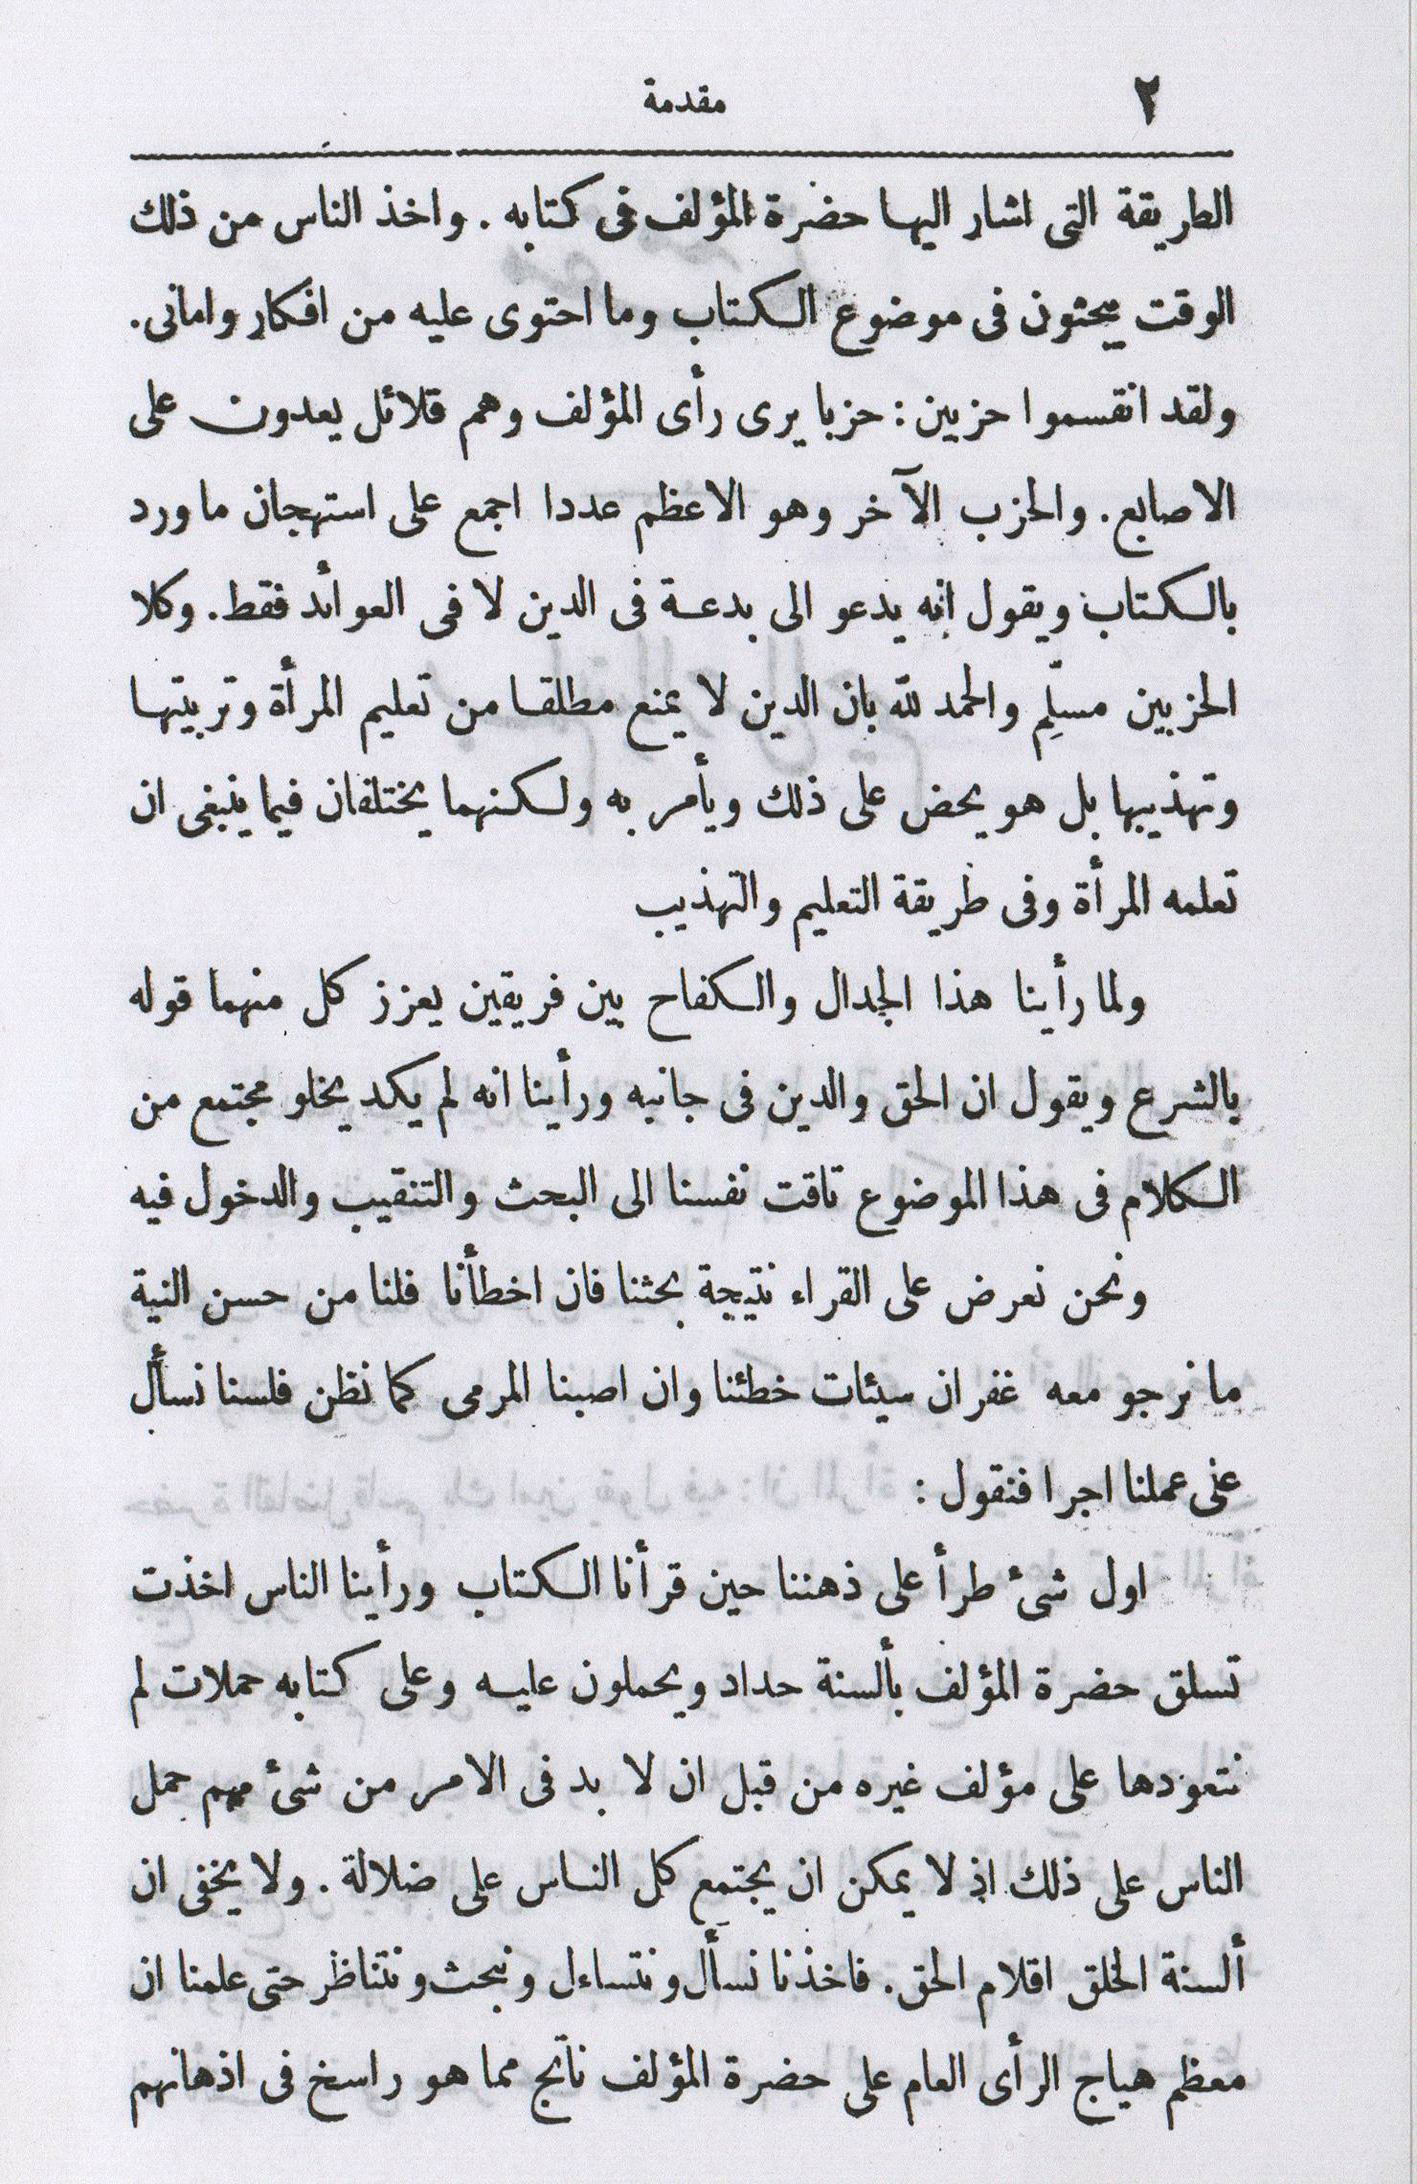 ٢
مقدمة
الطريقة التى اشار اليها حضرة المؤلف فى كتابه . واخذ الناس من ذلك
الوقت يبحثون فى موضوع الكتاب وما احتوى عليه من افكار وامانى.
ولقد انقسموا حزبين : حزبا يرى رأى المؤلف وهم قلائل يعدون على
الاصابع. والحزب الآخر وهو الاعظم عددا اجمع على استهجان ماورد
بالكتاب ويقول انه يدعو الى بدعة فى الدين لا فى العوائد فقط. وكلا
الحزبين مسلّم والحمد لله بان الدين لا يمنع مطلقا من تعليم المرأة وتربيتها
وتهذيبها بل هو يحض على ذلك ويأمر به ولكنهما يختلفان فيما ينبغى ان
تعلمه المرأة وفى طريقة التعليم والتهذيب
ولما رأينا هذا الجدال والكفاح بين فريقين يعزز كل منهما قوله
بالشرع ويقول ان الحق والدين فى جانبه ورأينا انه لم يكد يخلو مجتمع من
الكلام فى هذا الموضوع تاقت نفسنا الى البحث والتنقيب والدخول فيه
ونحن نعرض على القراء نتيجة بحثنا فان اخطأنا فلنا من حسن النية
ما نرجو معه غفران سيئات خطئنا وان اصبنا المرمى كما نظن فلسنا نسأل
على عملنا اجرا فنقول :
اول شئ طرأ على ذهننا حين قرأنا الكتاب ورأينا الناس اخذت
تسلق حضرة المؤلف بألسنة حداد ويحملون عليه وعلى كتابه حملات لم
نتعودها على مؤلف غيره من قبل ان لا بد فى الامر من شئ مهم حمل
الناس على ذلك اذ لا يمكن ان يجتمع كل الناس على ضلالة . ولا يخفى ان
ألسنة الخلق اقلام الحق. فاخذنا نسأل ونتساءل ونبحث ونتناظر حتى علمنا ان
معظم هياج الرأى العام على حضرة المؤلف ناتج مما هو راسخ فى اذهانهم